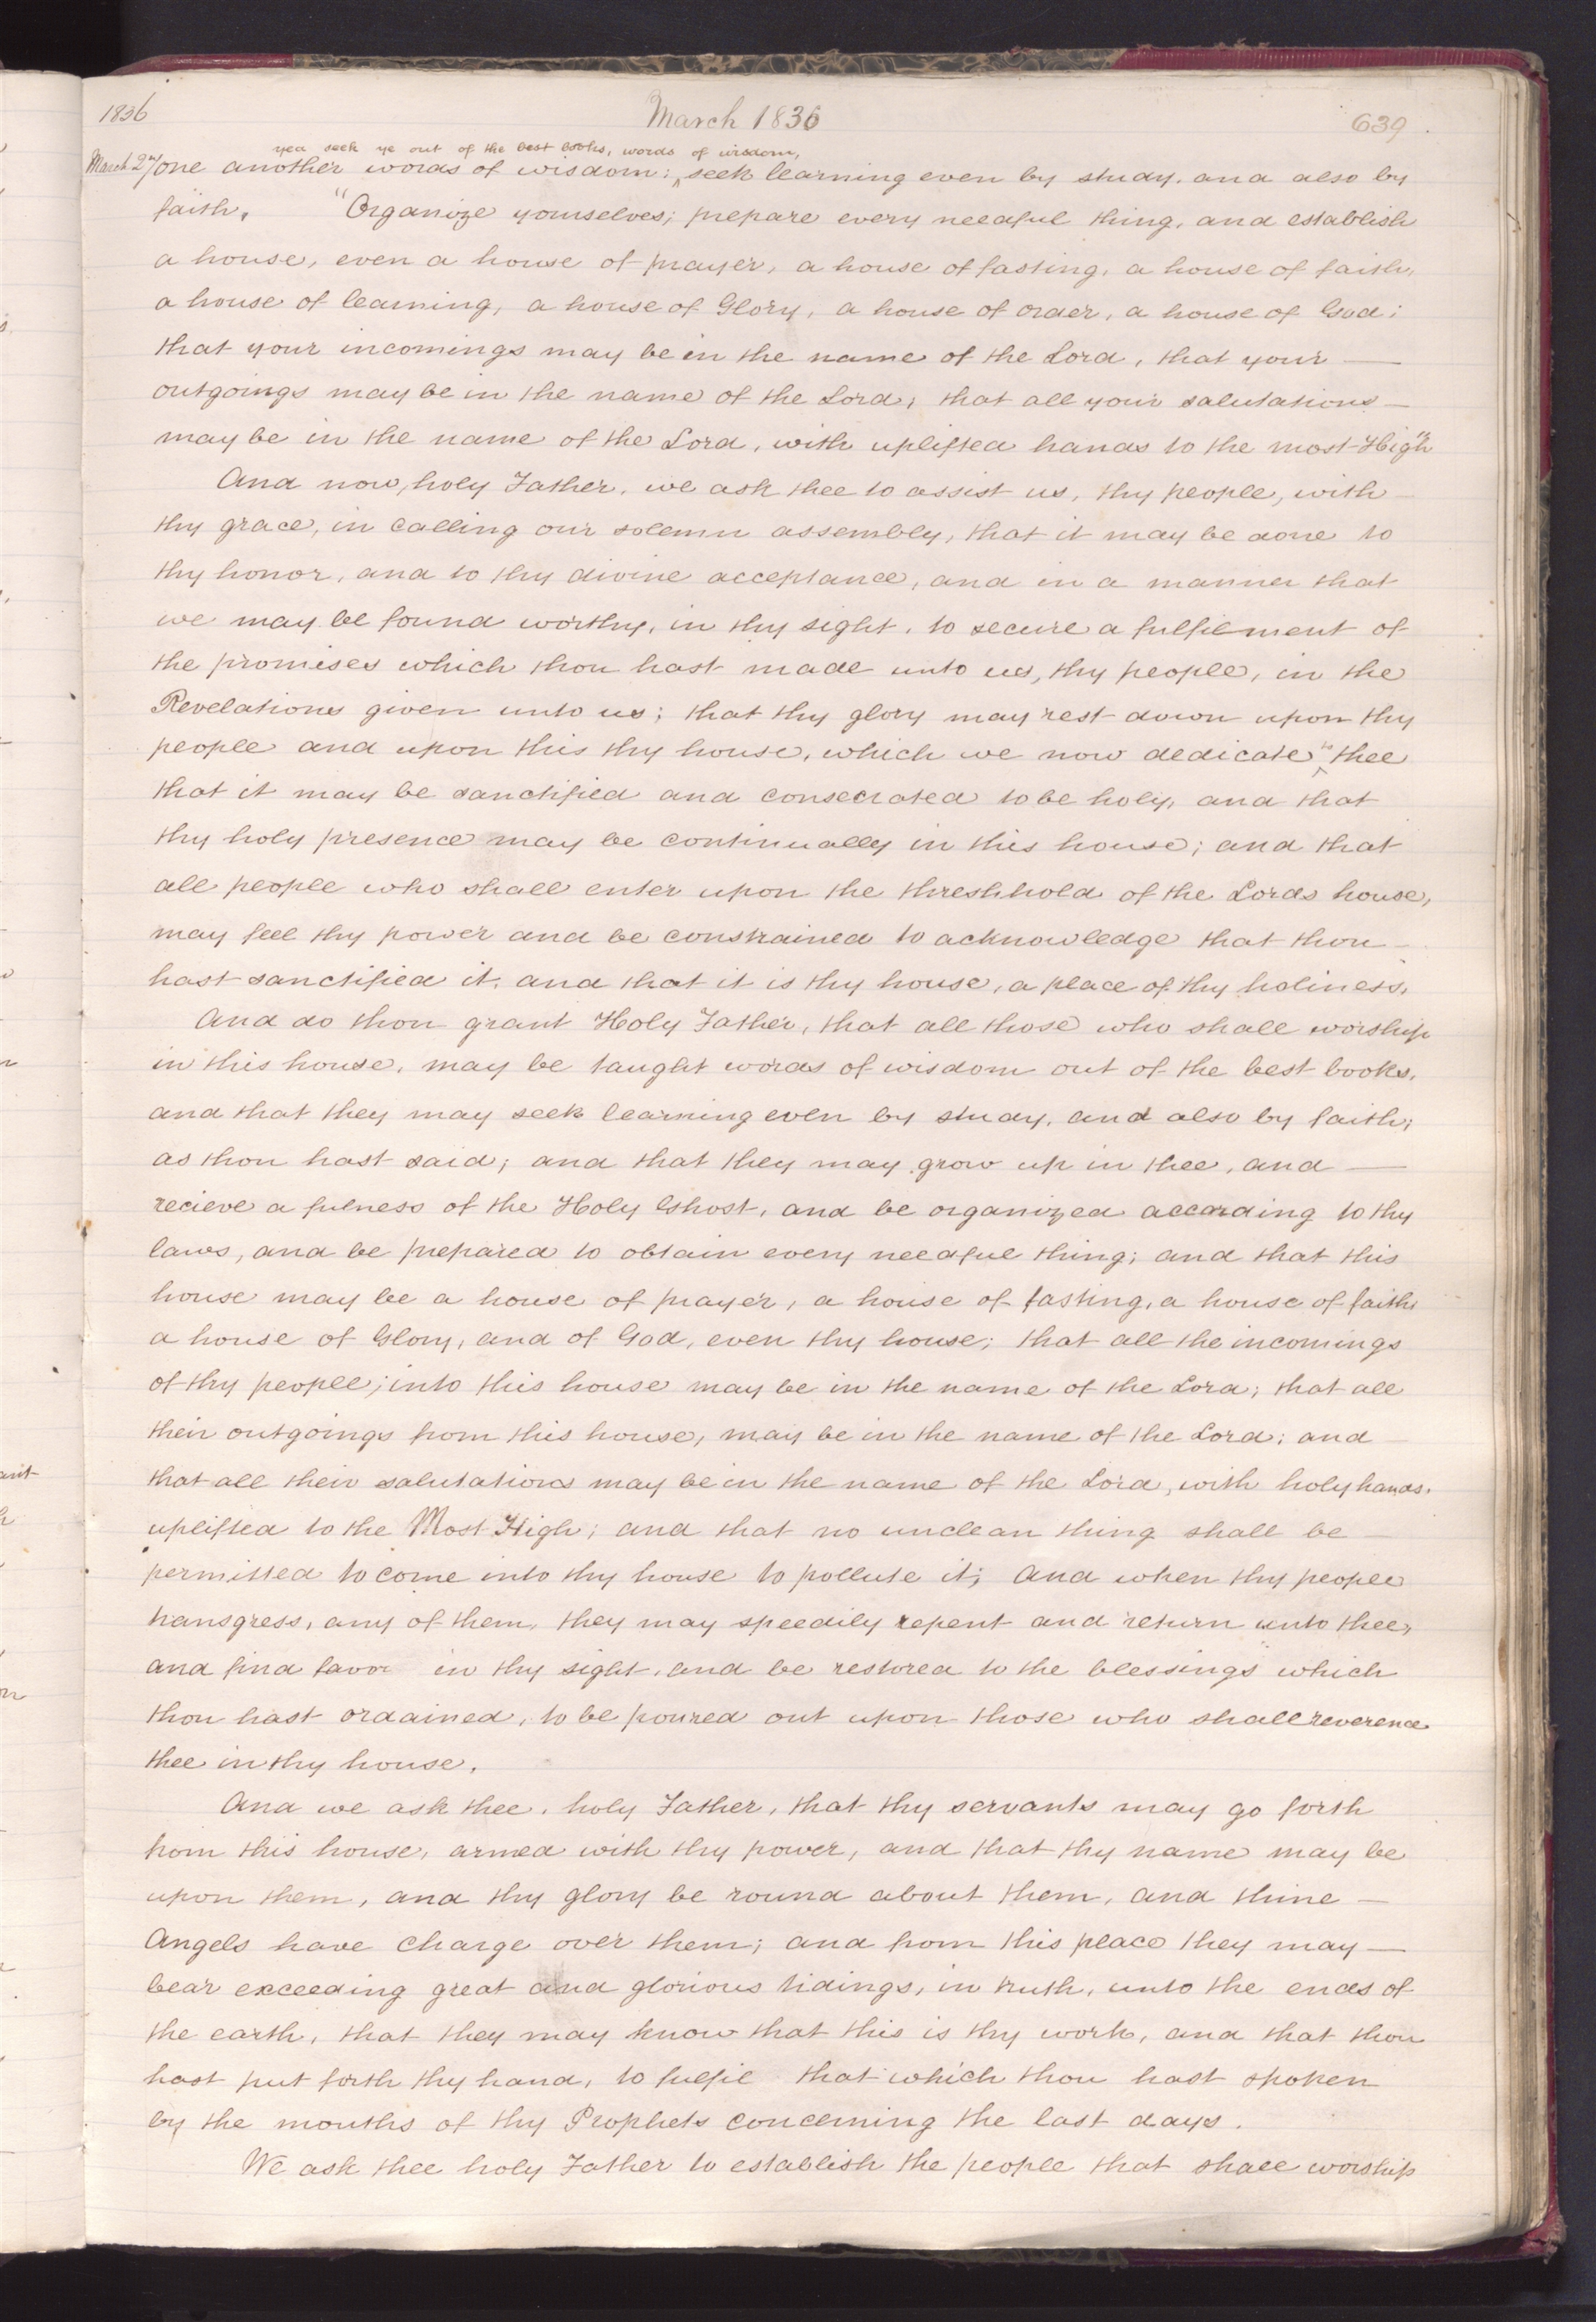 1836
March 1836
639
yea seek ye out of the best books, words of wisdom,
March 27 one another words of wisdom: seek learning even by study, and also by
faith. "Organize yourselves; prepare every needful thing, and establish
a house, even a house of prayer, a house of fasting, a house of faith,
a house of learning, a house of Glory, a house of order, a house of God;
that your incomings may be in the name of the Lord, that your
outgoings may be in the name of the Lord; that all your salutations
may be in the name of the Lord, with uplifted hands to the most High"
And now, holy Father, we ask thee to assist us, thy people, with
thy grace, in calling our solemn assembly, that it may be done to
thy honor, and to thy divine acceptance, and in a manner that
we may be found worthy, in thy sight, to secure a fulfilment of
the promises which thou hast made unto us, thy people, in the
Revelations given unto us; that thy glory may rest down upon thy
people and upon this thy house, which we now dedicate to thee
that it may be sanctified and consecrated to be holy, and that
thy holy presence may be continually in this house; and that
all people who shall enter upon the threshhold of the Lords house,
may feel thy power and be constrained to acknowledge that thou
hast sanctified it, and that it is thy house, a place of thy holiness.
And do thou grant Holy Father, that all those who shall worship
in this house, may be taught words of wisdom out of the best books,
and that they may seek learning even by study, and also by faith;
as thou hast said; and that they may grow up in thee, and
recieve a fulness of the Holy Ghost, and be organized according to thy
laws, and be prepared to obtain every needful thing; and that this
house may be a house of prayer, a house of fasting, a house of faith,
a house of Glory, and of God, even thy house; that all the incomings
of thy people; into this house may be in the name of the Lord; that all
their outgoings from this house, may be in the name of the Lord; and
that all their salutations may be in the name of the Lord, with holy hands,
uplifted to the Most High; and that no unclean thing shall be
permitted to come into thy house to pollute it; and when thy people
transgress, any of them, they may speedily repent and return unto thee,
and find favor in thy sight, and be restored to the blessings which
thou hast ordained, to be poured out upon those who shall reverence
thee in thy house.
And we ask thee, holy Father, that thy servants may go forth
from this house, armed with thy power, and that thy name may be
upon them, and thy glory be round about them, and thine
Angels have charge over them; and from this place they may
bear exceeding great and glorious tidings, in truth, unto the ends of
the earth, that they may know that this is thy work, and that thou
hast put forth thy hand, to fulfil that which thou hast spoken
by the mouths of thy Prophets concerning the last days.
We ask thee holy Father to establish the people that shall worship